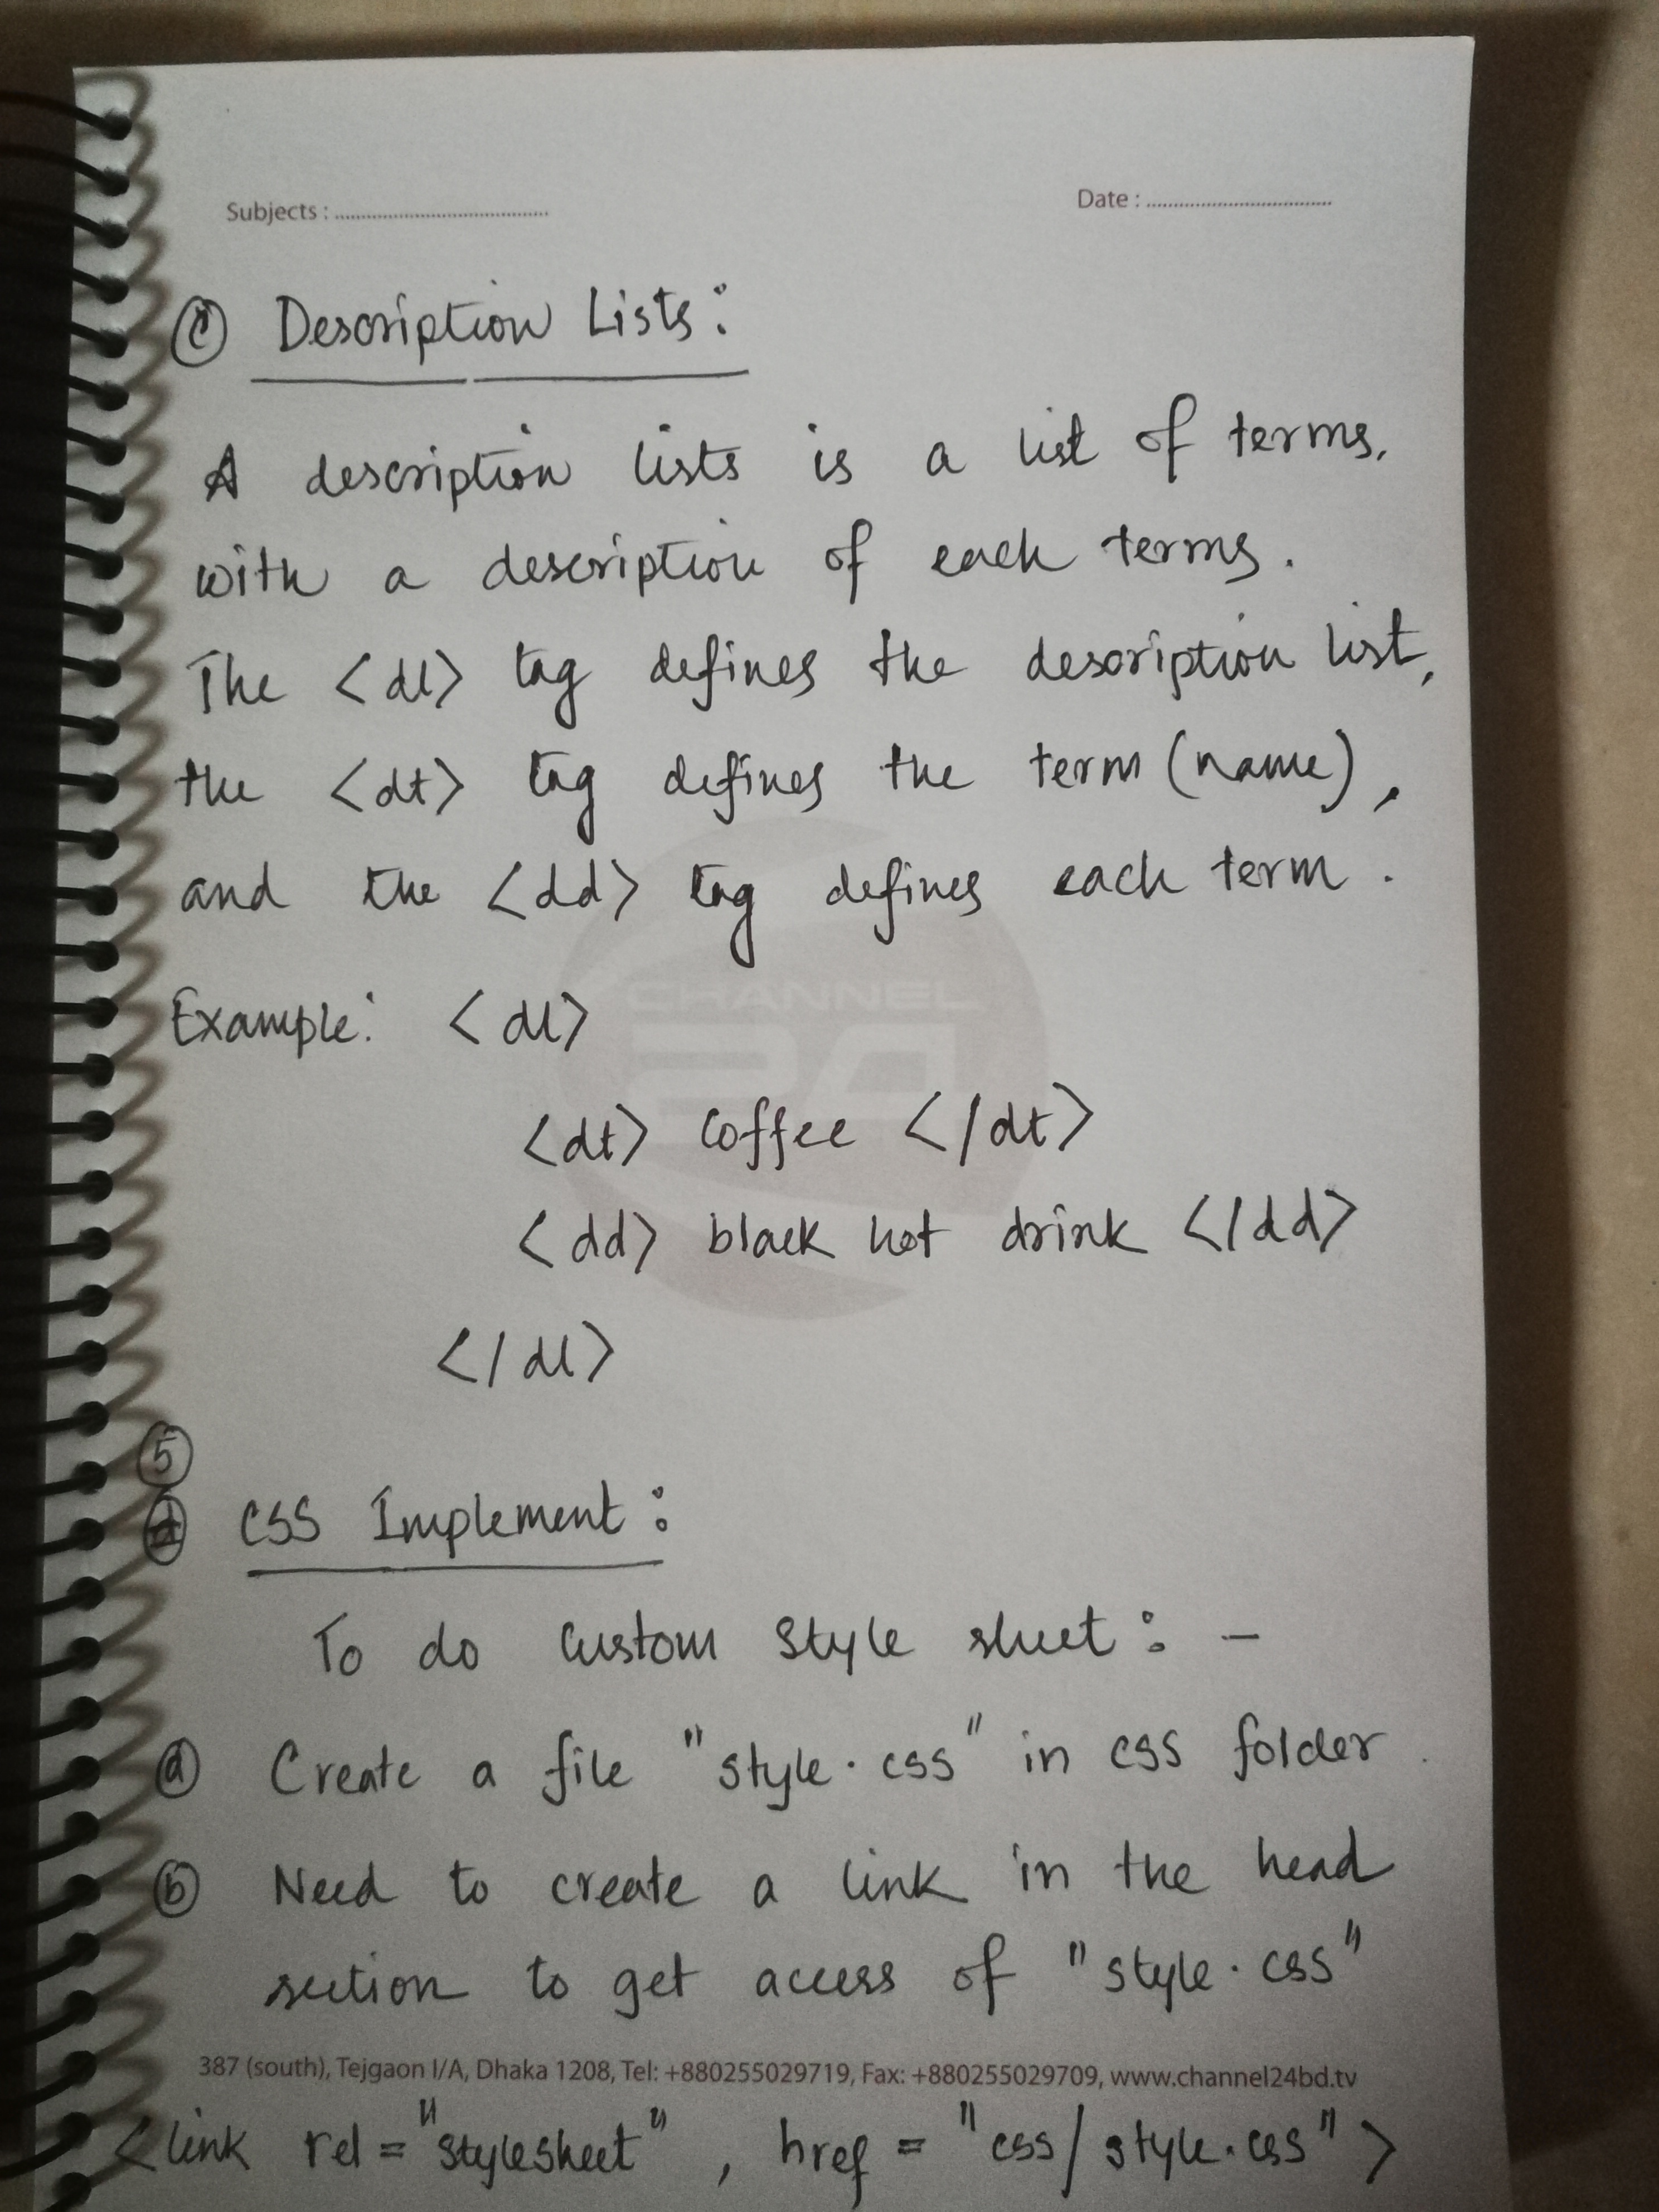 Subjects : ........................................ Date : ...................................
(c) Description Lists:
A description lists is a list of terms,
with a description of each terms.
The <dl> tag defines the description list,
the <dt> tag defines the term (name),
and the <dd> tag defines each term.
CHANNEL
24
Example: <dl>
<dt> Coffee </dt>
<dd> black hot drink </dd>
</dl>
(5)
CSS Implement:
To do Custom Style sheet: -
(a) Create a file "style.css" in css folder.
(b) Need to create a link in the head
section to get access of "style.css"
387 (south), Tejgaon I/A, Dhaka 1208, Tel: +880255029719, Fax: +880255029709, www.channel24bd.tv
<link rel="stylesheet", href = "css/style.css">